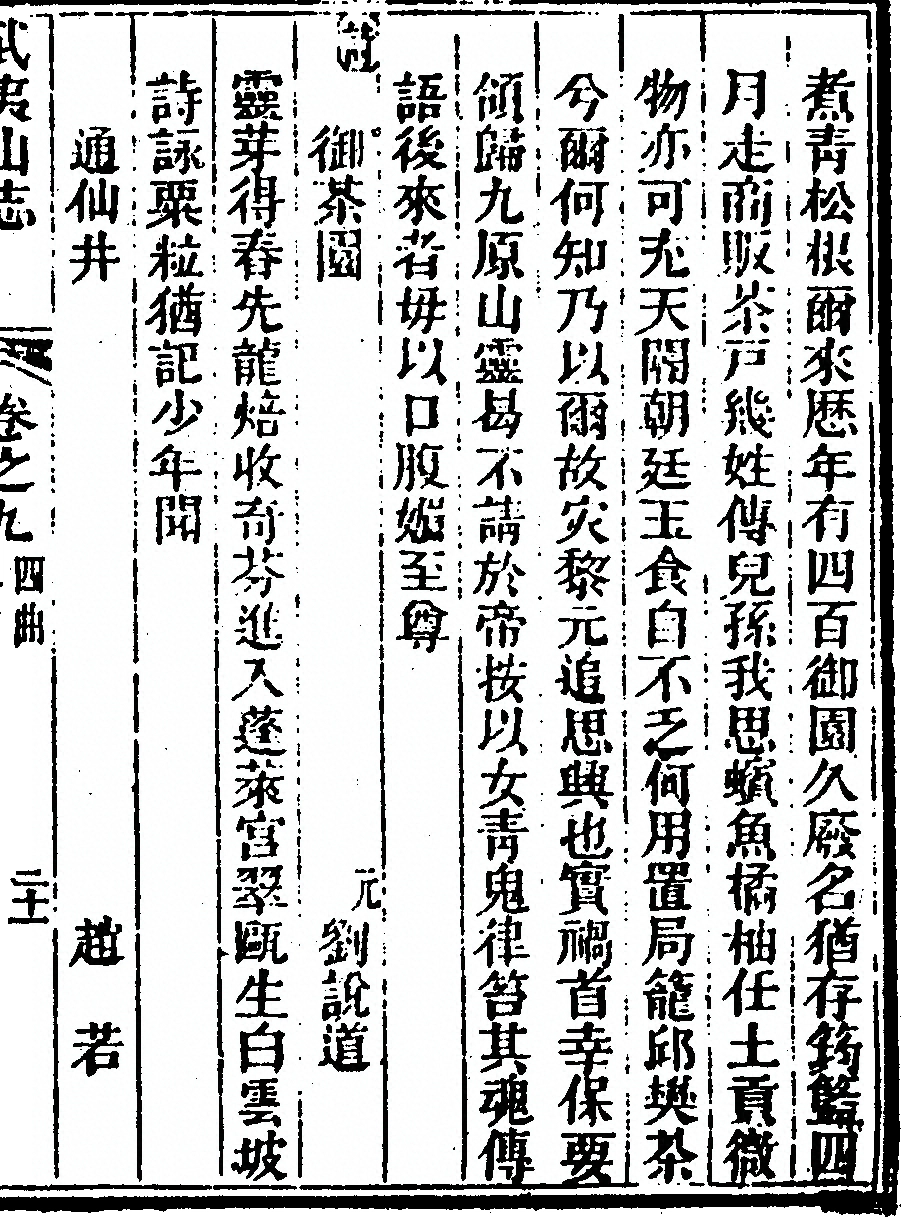 煮青松根爾來歷年有四百御園久廢名猶存筠籃四
月走商販茶戸幾姓傳兒孫我思蠙魚橘柚任土貢微
物亦可充天閽朝廷玉食自不乏何用置局籠邱樊茶
兮爾何知乃以爾故灾黎元追思興也實禍首幸保要
領歸九原山靈曷不請於帝按以女青鬼律笞其魂傳
語後來者毋以口腹媚至尊
御茶園
元 劉說道
靈芽得春先龍焙收奇芬進入蓬萊宮翠甌生白雲坡
詩詠粟粒猶記少年聞
通仙井
趙 若
武夷山志 卷之九 四曲 二十